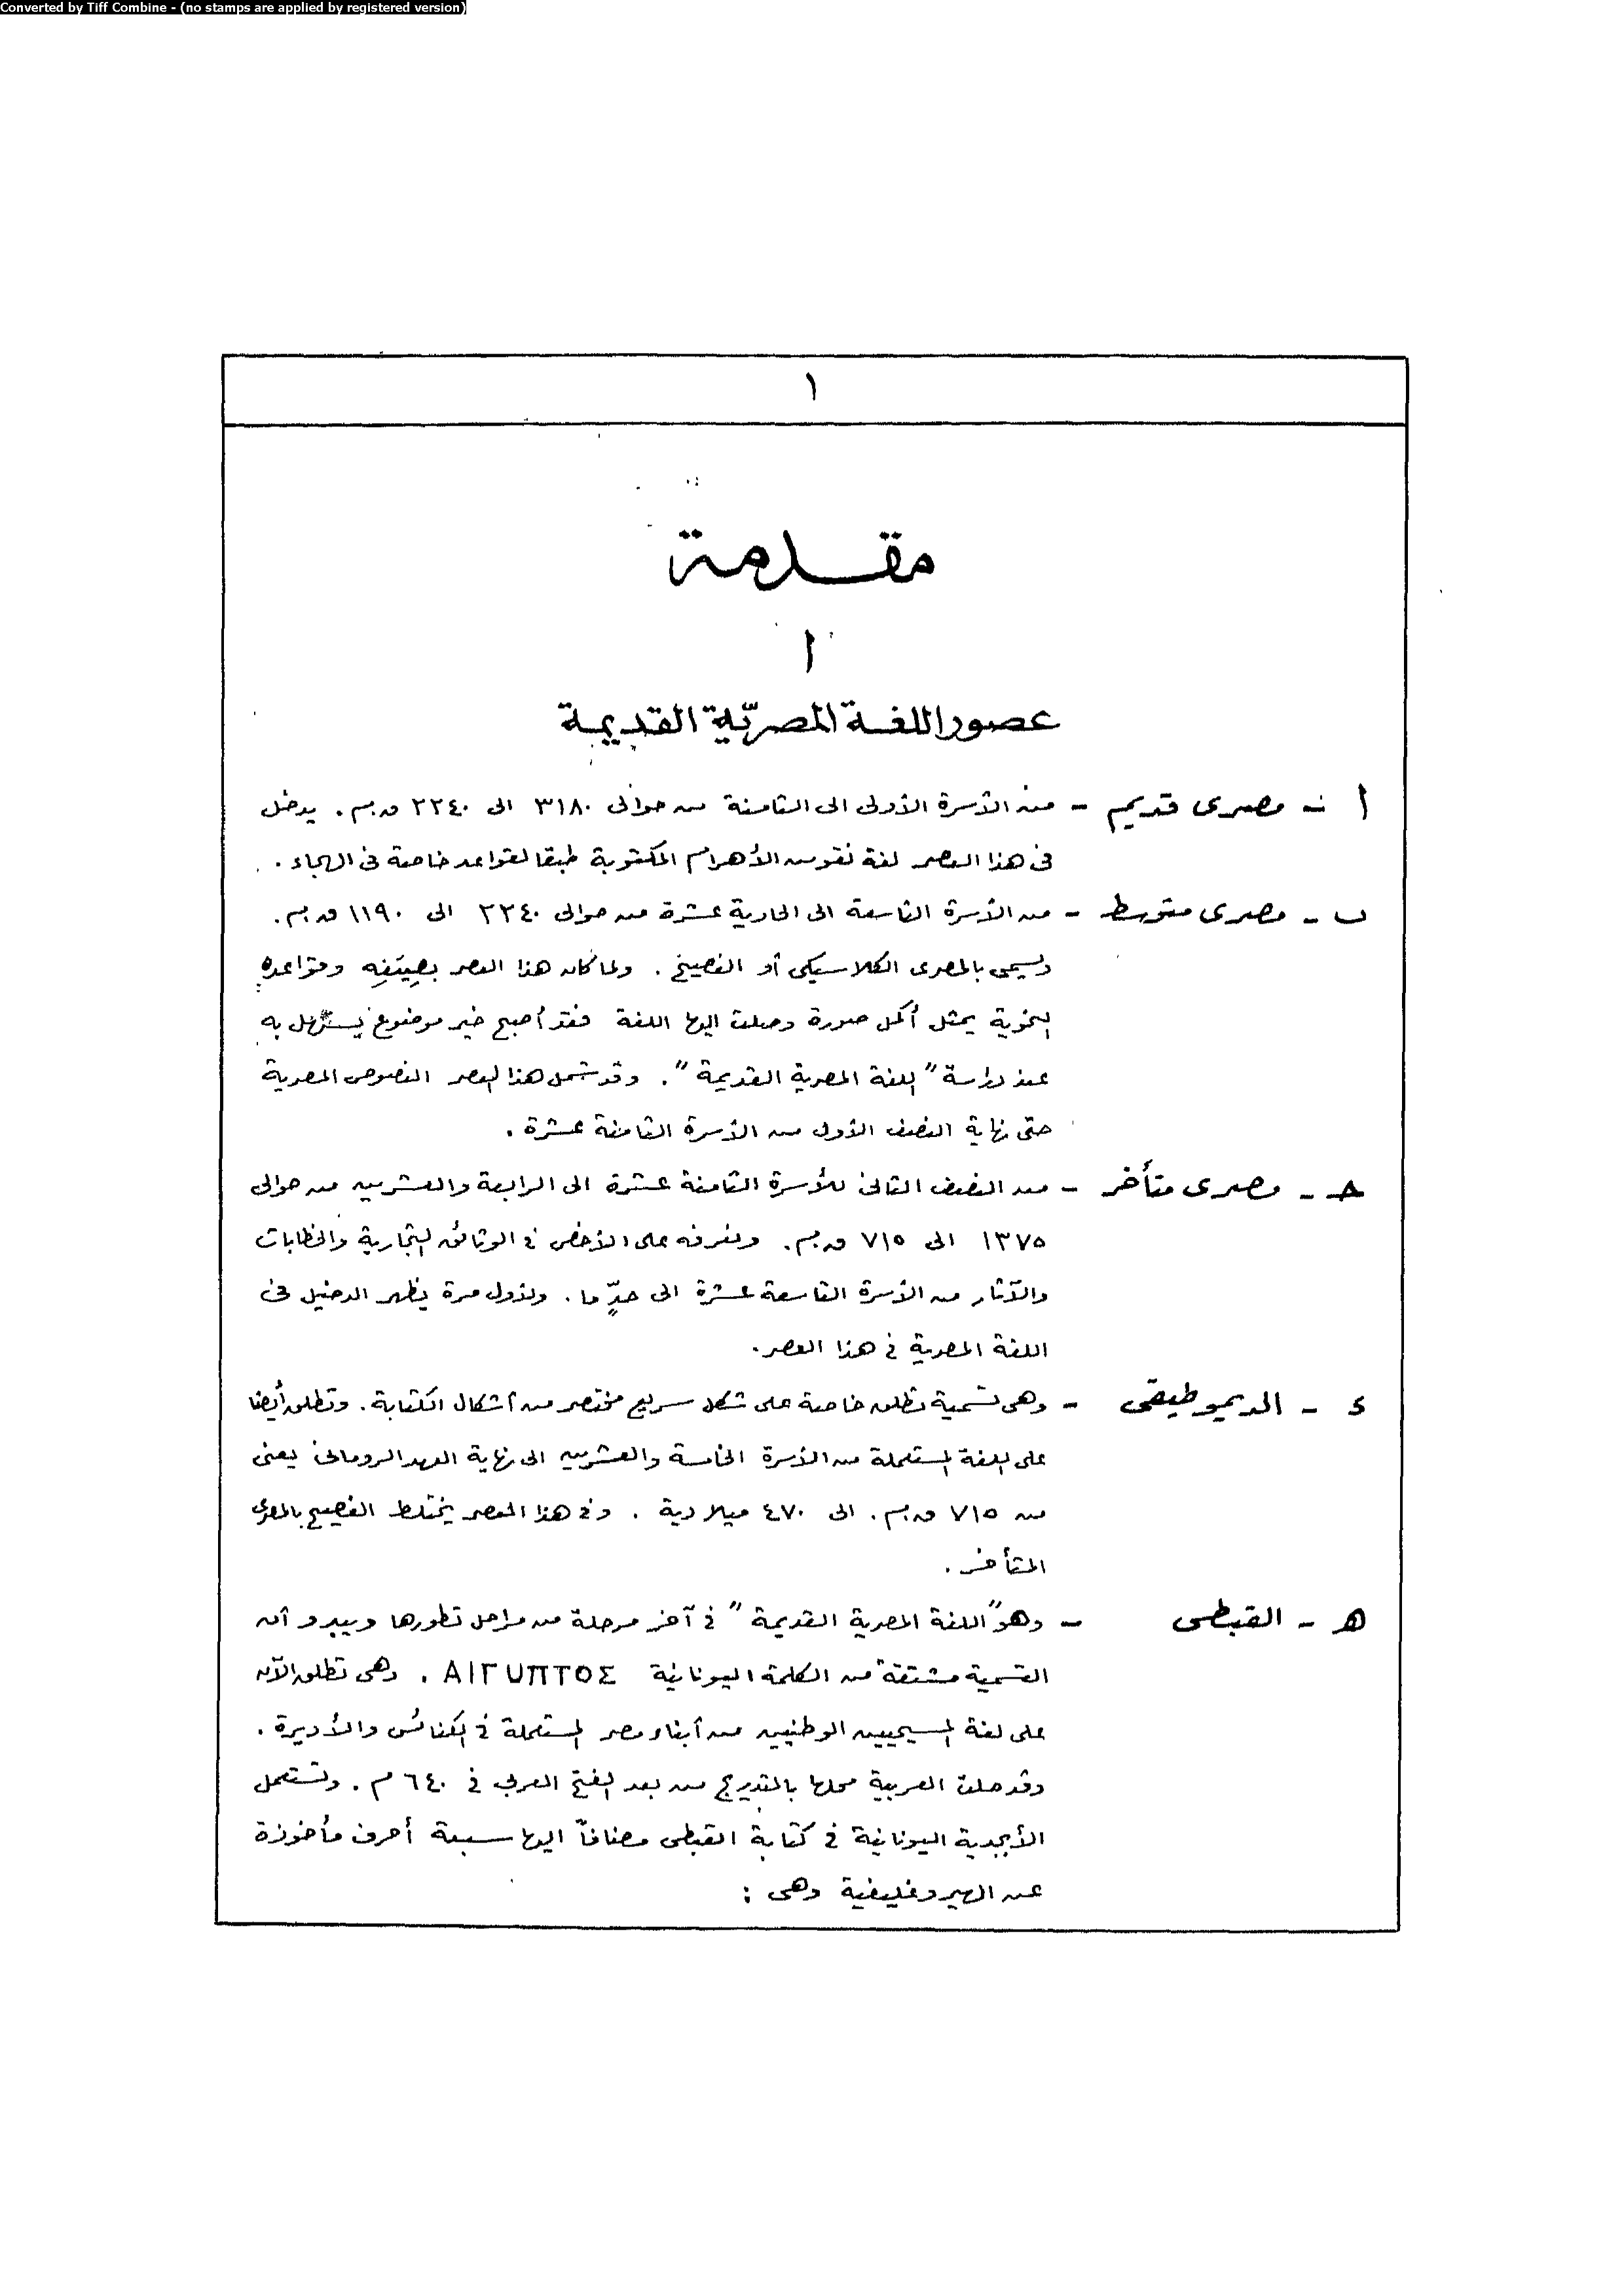 Converted by Tiff Combine - (no stamps are applied by registered version)
١
مقدمة
١
عصور اللغة المصريّة القديمة
ا - مصرى قديم - من الأسرة الأولى الى الثامنة من حوالى ٣١٨٠ الى ٢٢٤٠ ق.م. يدخل
فى هذا العصر لغة نقوش الأهرام المكتوبة طبقا لقواعد خاصة فى الهجاء .
ب - مصرى متوسط - من الأسرة التاسعة الى الحادية عشرة من حوالى ٢٢٤٠ الى ١١٩٠ ق.م.
ويسمى بالمصرى الكلاسيكى أو الفصيح . ولما كان هذا العصر بصِيَغِه وقواعده
النحوية يمثل أكمل صورة وصلت اليها اللغة فقد أصبح خير موضوع يستهل به
عند دراسة " اللغة المصرية القديمة " . وقد شمل هذا العصر النصوص المصرية
حتى نهاية النصف الأول من الأسرة الثامنة عشرة .
حـ - مصرى متأخر - من النصف الثانى للأسرة الثامنة عشرة الى الرابعة والعشرين من حوالى
١٣٧٥ الى ٧١٥ ق.م. ونعرفه على الأخص فى الوثائق التجارية والخطابات
والآثار من الأسرة التاسعة عشرة الى حدٍّ ما . ولأول مرة يظهر الدخيل فى
اللغة المصرية فى هذا العصر.
ء - الديموطيقى - وهى تسمية تطلق خاصة على شكل سريع مختصر من أشكال الكتابة . وتطلق أيضا
على اللغة المستعملة من الأسرة الخامسة والعشرين الى نهاية العهد الرومانى يعنى
من ٧١٥ ق.م. الى ٤٧٠ ميلادية . وفى هذا العصر يختلط الفصيح بالمصرى
المتأخر .
ه - القبطى - وهو " اللغة المصرية القديمة " فى آخر مرحلة من مراحل تطورها ويبدو أن
التسمية مشتقة من الكلمة اليونانية ΑΙΓΥΠΤΟΣ . وهى تطلق الآن
على لغة المسيحيين الوطنيين من أبناء مصر المستعملة فى الكنائس والأديرة .
وقد حلت العربية محلها بالتدريج من بعد الفتح العربى فى ٦٤٠ م . وتستعمل
الأبجدية اليونانية فى كتابة القبطى مضافاً اليها سبعة أحرف مأخوذة
عن الهيروغليفية وهى :